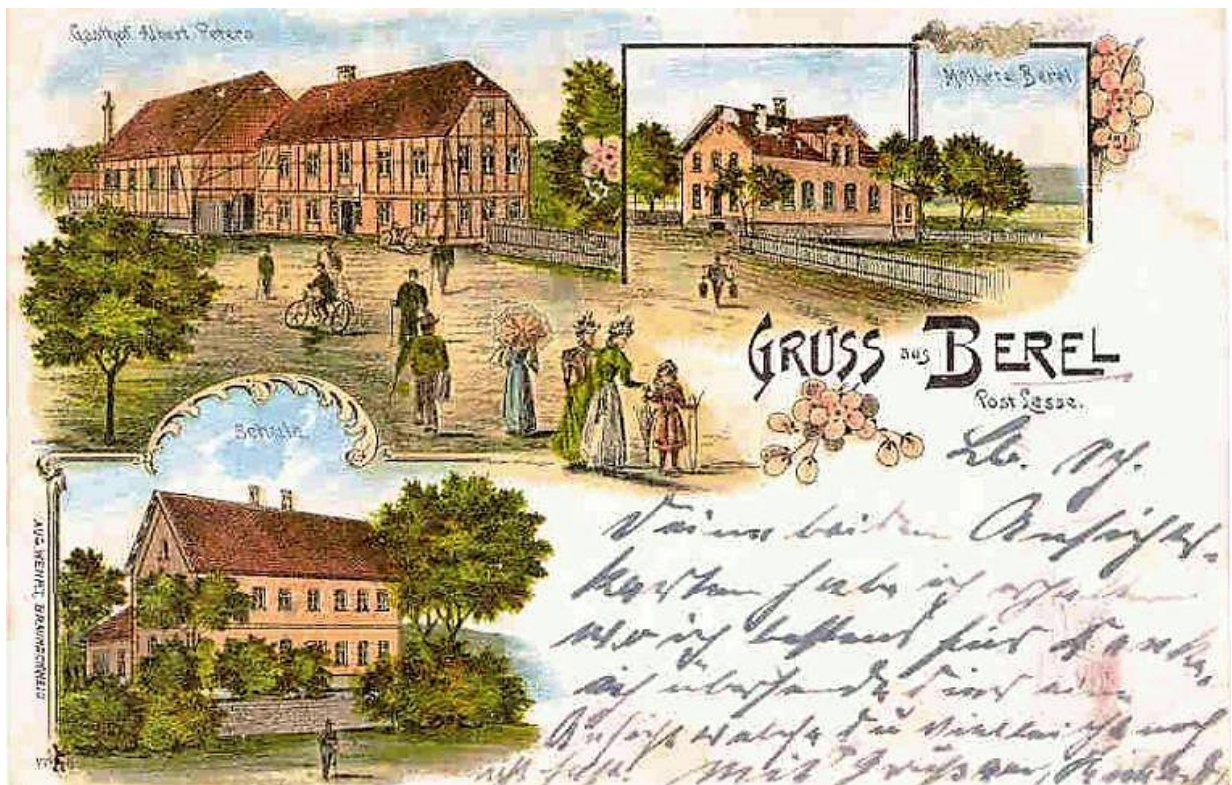 Gasthof Albert Peters
Molkerei Berel
GRUSS aus BEREL
Post Lesse.
Schule.
AUG. WEHRT, BRAUNSCHWEIG
Lb.
Deine beiden Ansichts-
karten habe ich erhalten
wo ich bestens für danke,
ich übersende dir eine
Ansicht welche du vielleicht noch
nicht hast. Mit Grüssen,